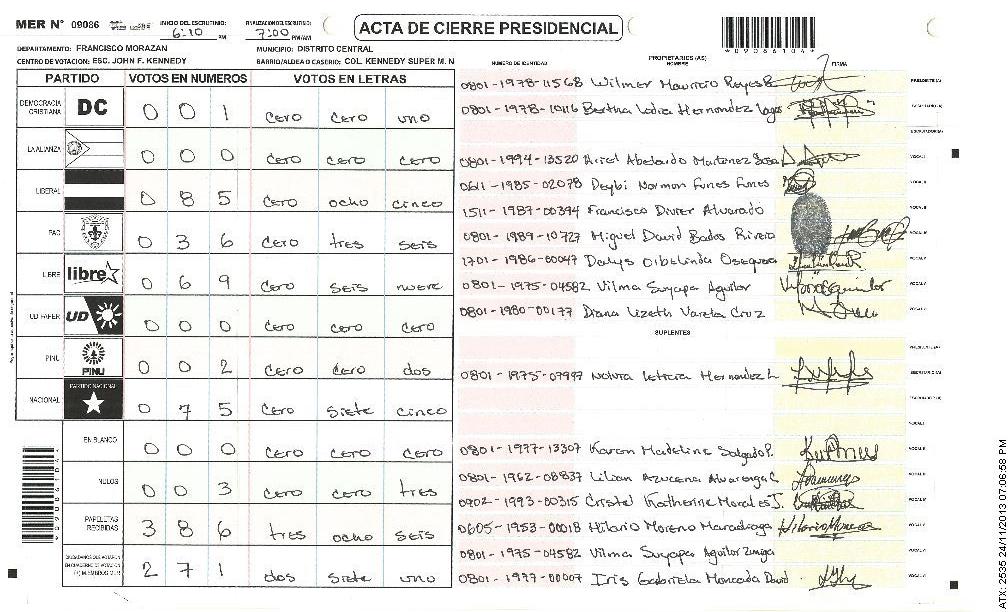 MER N° 09086
INICIO DEL ESCRUTINIO:
6:10 PM
FINALIZACION DEL ESCRUTINIO:
7:00 PM/AM
ACTA DE CIERRE PRESIDENCIAL
DEPARTAMENTO: FRANCISCO MORAZAN
MUNICIPIO: DISTRITO CENTRAL
CENTRO DE VOTACION: ESC. JOHN F. KENNEDY
BARRIO/ALDEA O CASERIO: COL. KENNEDY SUPER M. N
PARTIDO VOTOS EN NUMEROS VOTOS EN LETRAS
DEMOCRACIA CRISTIANA DC 0 0 1 cero cero uno
LA ALIANZA 0 0 0 cero cero cero
LIBERAL 0 8 5 cero ocho cinco
PAC 0 3 6 cero tres seis
LIBRE libre 0 6 9 cero seis nueve
UD FAPER UD 0 0 0 cero cero cero
PINU PINU 0 0 2 cero cero dos
NACIONAL PARTIDO NACIONAL 0 7 5 cero siete cinco
EN BLANCO 0 0 0 cero cero cero
NULOS 0 0 3 cero cero tres
PAPELETAS RECIBIDAS 3 8 6 tres ocho seis
CIUDADANOS QUE VOTARON EN CUADERNO DE VOTACION (+) MIEMBROS MER 2 7 1 dos siete uno
NUMERO DE IDENTIDAD
PROPIETARIOS (AS)
NOMBRE
FIRMA
0801-1978-11568 Wilmer Mauricio Reyes R.
0801-1978-10116 Bertha Lidia Hernandez Lagos
0801-1994-13520 Ariel Abelardo Martinez Sosa
0611-1985-02078 Deybi Norman Funes Funes
1511-1987-00394 Francisco Alvarado
0801-1989-10727 Miguel David Bados Rivera
1701-1986-00047 Dalys Oseguera
0801-1975-04582 Vilma Suyapa Aguilar
0801-1980-00177 Diana Lizeth Varela Cruz
SUPLENTES
0801-1975-07997 Leticia Hernandez L
0801-1977-13307 Karen Madeline Salgado P.
0801-1962-08837 Lilian Azucena Alvarenga C
0902-1993-00315 Cristel Katherine Morales J.
0605-1953-00018 Hilario Moreno Maradiaga
0801-1975-04582 Vilma Suyapa Aguilar Zuniga
0801-1977-00007 Iris Gabriela Moncada David
ATX: 2535 24/11/2013 07:06:58 PM